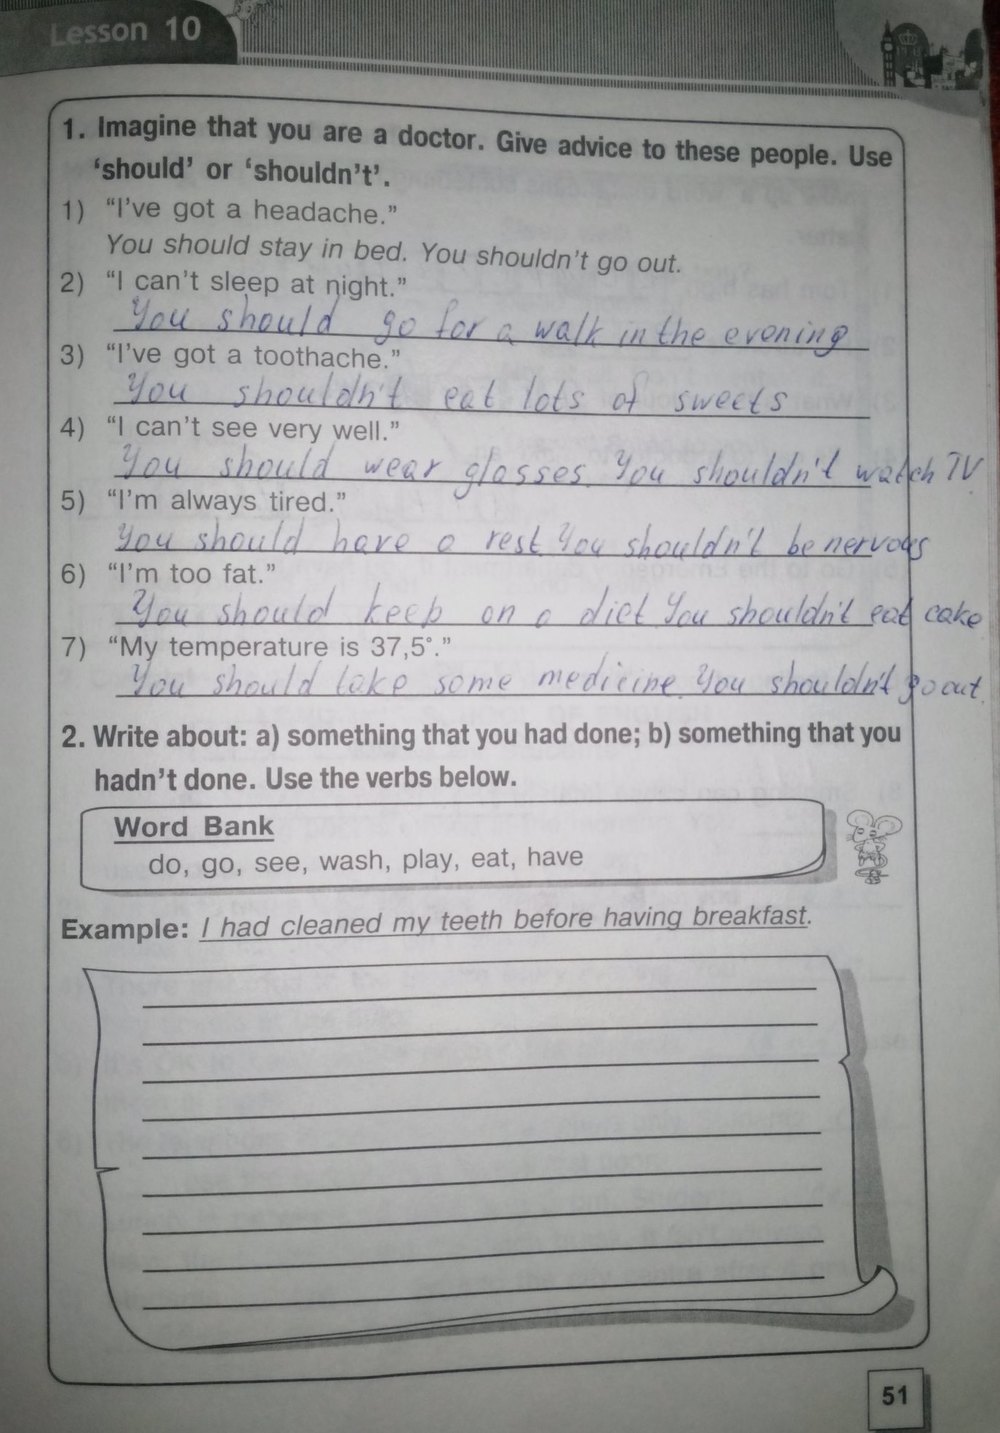 Lesson 10
1. Imagine that you are a doctor. Give advice to these people. Use
‘should’ or ‘shouldn’t’.
1) “I’ve got a headache.”
You should stay in bed. You shouldn’t go out.
2) “I can’t sleep at night.”
You should go for a walk in the evening
3) “I’ve got a toothache.”
You shouldn't eat lots of sweets
4) “I can’t see very well.”
You should wear glasses. You shouldn't watch TV
5) “I’m always tired.”
You should have a rest. You shouldn't be nervous
6) “I’m too fat.”
You should keep on a diet. You shouldn't eat cake
7) “My temperature is 37,5°.”
You should take some medicine. You shouldn't go out.
2. Write about: a) something that you had done; b) something that you
hadn’t done. Use the verbs below.
Word Bank
do, go, see, wash, play, eat, have
Example: I had cleaned my teeth before having breakfast.
51